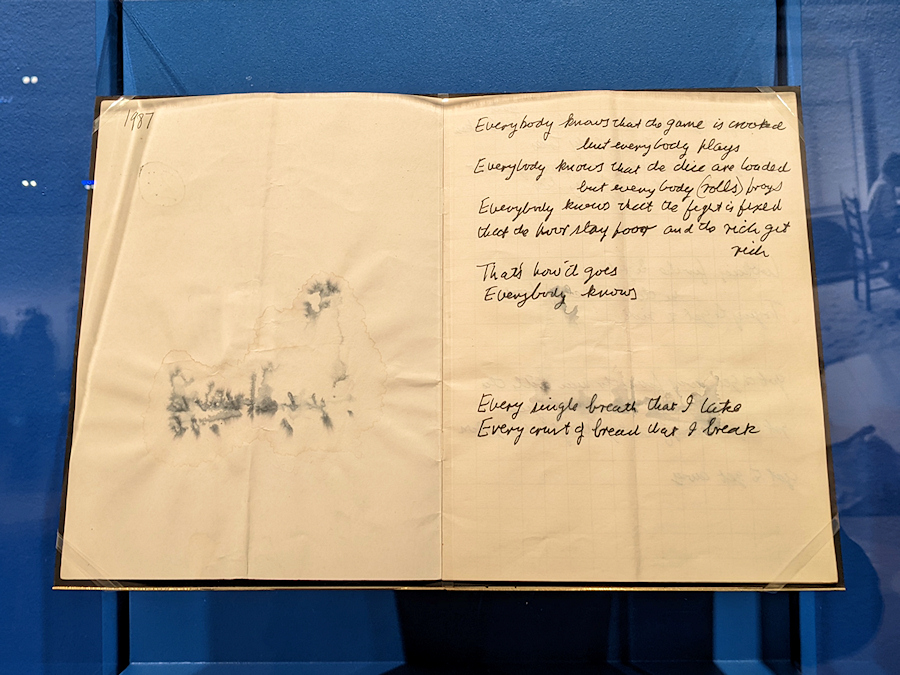 1987
Everybody knows that the game is crooked
but everybody plays
Everybody knows that the dice are loaded
but every body (rolls) prays
Everybody knows that the fight is fixed
that the poor stay poor and the rich get
rich
That's how it goes
Everybody knows
Every single breath that I take
Every crust of bread that I break